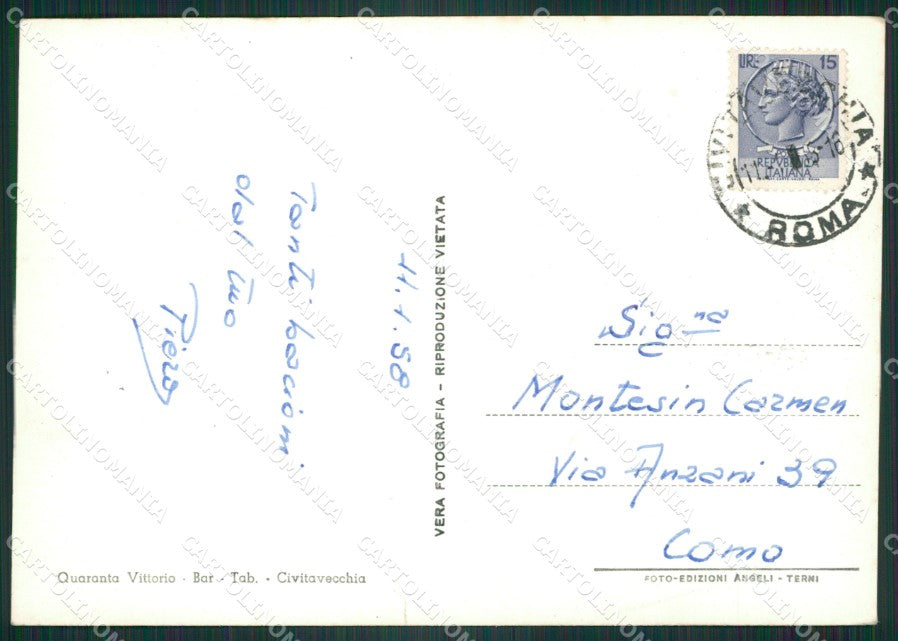 11.1.58
Tanti bacioni
dal tuo
Piero
VERA FOTOGRAFIA - RIPRODUZIONE VIETATA
Quaranta Vittorio - Bar - Tab. - Civitavecchia
LIRE 15
REPVBBLICA
ITALIANA
CIVITAVECCHIA
ROMA
Sig.na
Montesin Carmen
Via Anzani 39
Como
FOTO-EDIZIONI ANGELI - TERNI
CARTOLINOMANIA